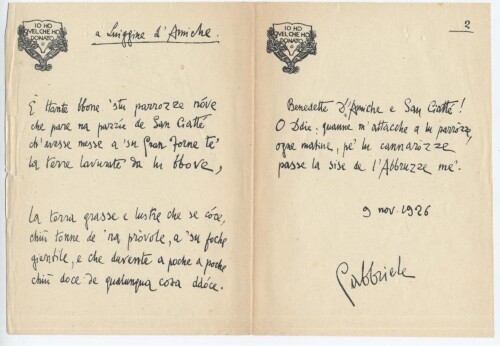 IO HO
QVEL CHE HO
DONATO
a Luiggine d'Amiche.
È ttante bbone 'stu parrozze nóve
che pare na pazzie de San Ciatté
ch'avesse messe a 'su Gran Forne te'
la terre lavurate da lu bbove,
La terra grasse e lustre che se cóce,
chiù tonne de 'na pròvole, a 'su foche
gientile, e che davente a poche a poche
chiù doce de qualunqua cosa ddóce.
IO HO
QVEL CHE HO
DONATO
2
Benedette D'Amiche e San Ciatté!
O Ddie: quanne m'attacche a lu parrozze,
ogne matine, pe' lu cannarozze
passe la sise de l'Abbruzze me'.
9 nov. 1926
Gabbriele